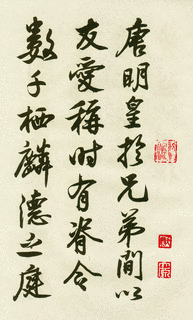 唐明皇於兄弟間以
友愛稱时有脊令
數千栖麟德之庭